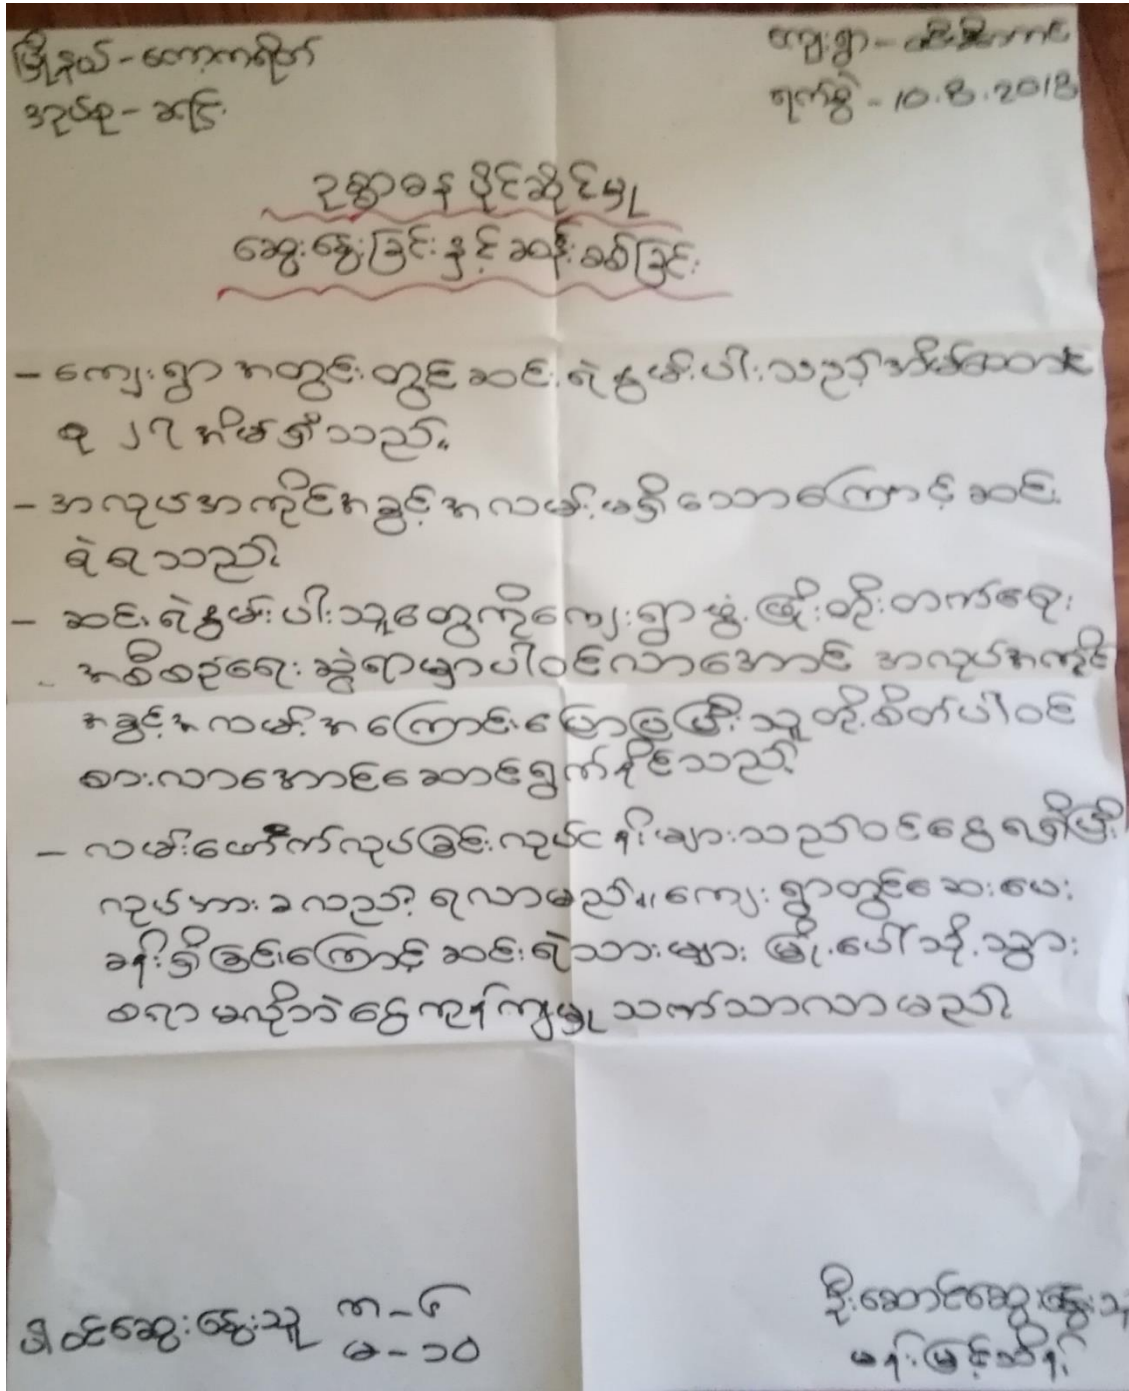 မြို့နယ် - ကော့ကရိတ်
ကျေးရွာ -
အုပ်စု -
ရက်စွဲ - 10.8.2018
ဥစ္စာဓန ပိုင်ဆိုင်မှု
ဆွေးနွေးခြင်းနှင့် ဆန်းစစ်ခြင်း
- ကျေးရွာ အတွင်းတွင် ဆင်းရဲနွမ်းပါးသည့် အိမ်ထောင်
စု ၂၇ အိမ်ရှိသည်။
- အလုပ်အကိုင်အခွင့်အလမ်းမရှိသောကြောင့် ဆင်း
ရဲရသည်။
- ဆင်းရဲနွမ်းပါးသူတွေကို ကျေးရွာဖွံ့ဖြိုးတိုးတက်ရေး
အစီစဉ်ရေးဆွဲရာမှာပါဝင်လာအောင် အလုပ်အကိုင်
အခွင့်အလမ်းအကြောင်းပြောပြပြီးသူတို့စိတ်ပါဝင်
စားလာအောင်ဆောင်ရွက်နိုင်သည်။
- လမ်းဖောက်လုပ်ခြင်းလုပ်ငန်းများသည်ဝင်ငွေရရှိပြီး
လုပ်အားခလည်း ရလာမည်။ ကျေးရွာတွင်ဆေးပေး
ခန်းရှိခြင်းကြောင့် ဆင်းရဲသားများ မြို့ပေါ်သို့သွား
စရာမလိုဘဲငွေကုန်ကျမှု သက်သာလာမည်။
ပါဝင်ဆွေးနွေးသူ ကျ - ၆
မ - ၁၀
ဦးဆောင်ဆွေးနွေးသူ
မန်းမြင့်သိန်း